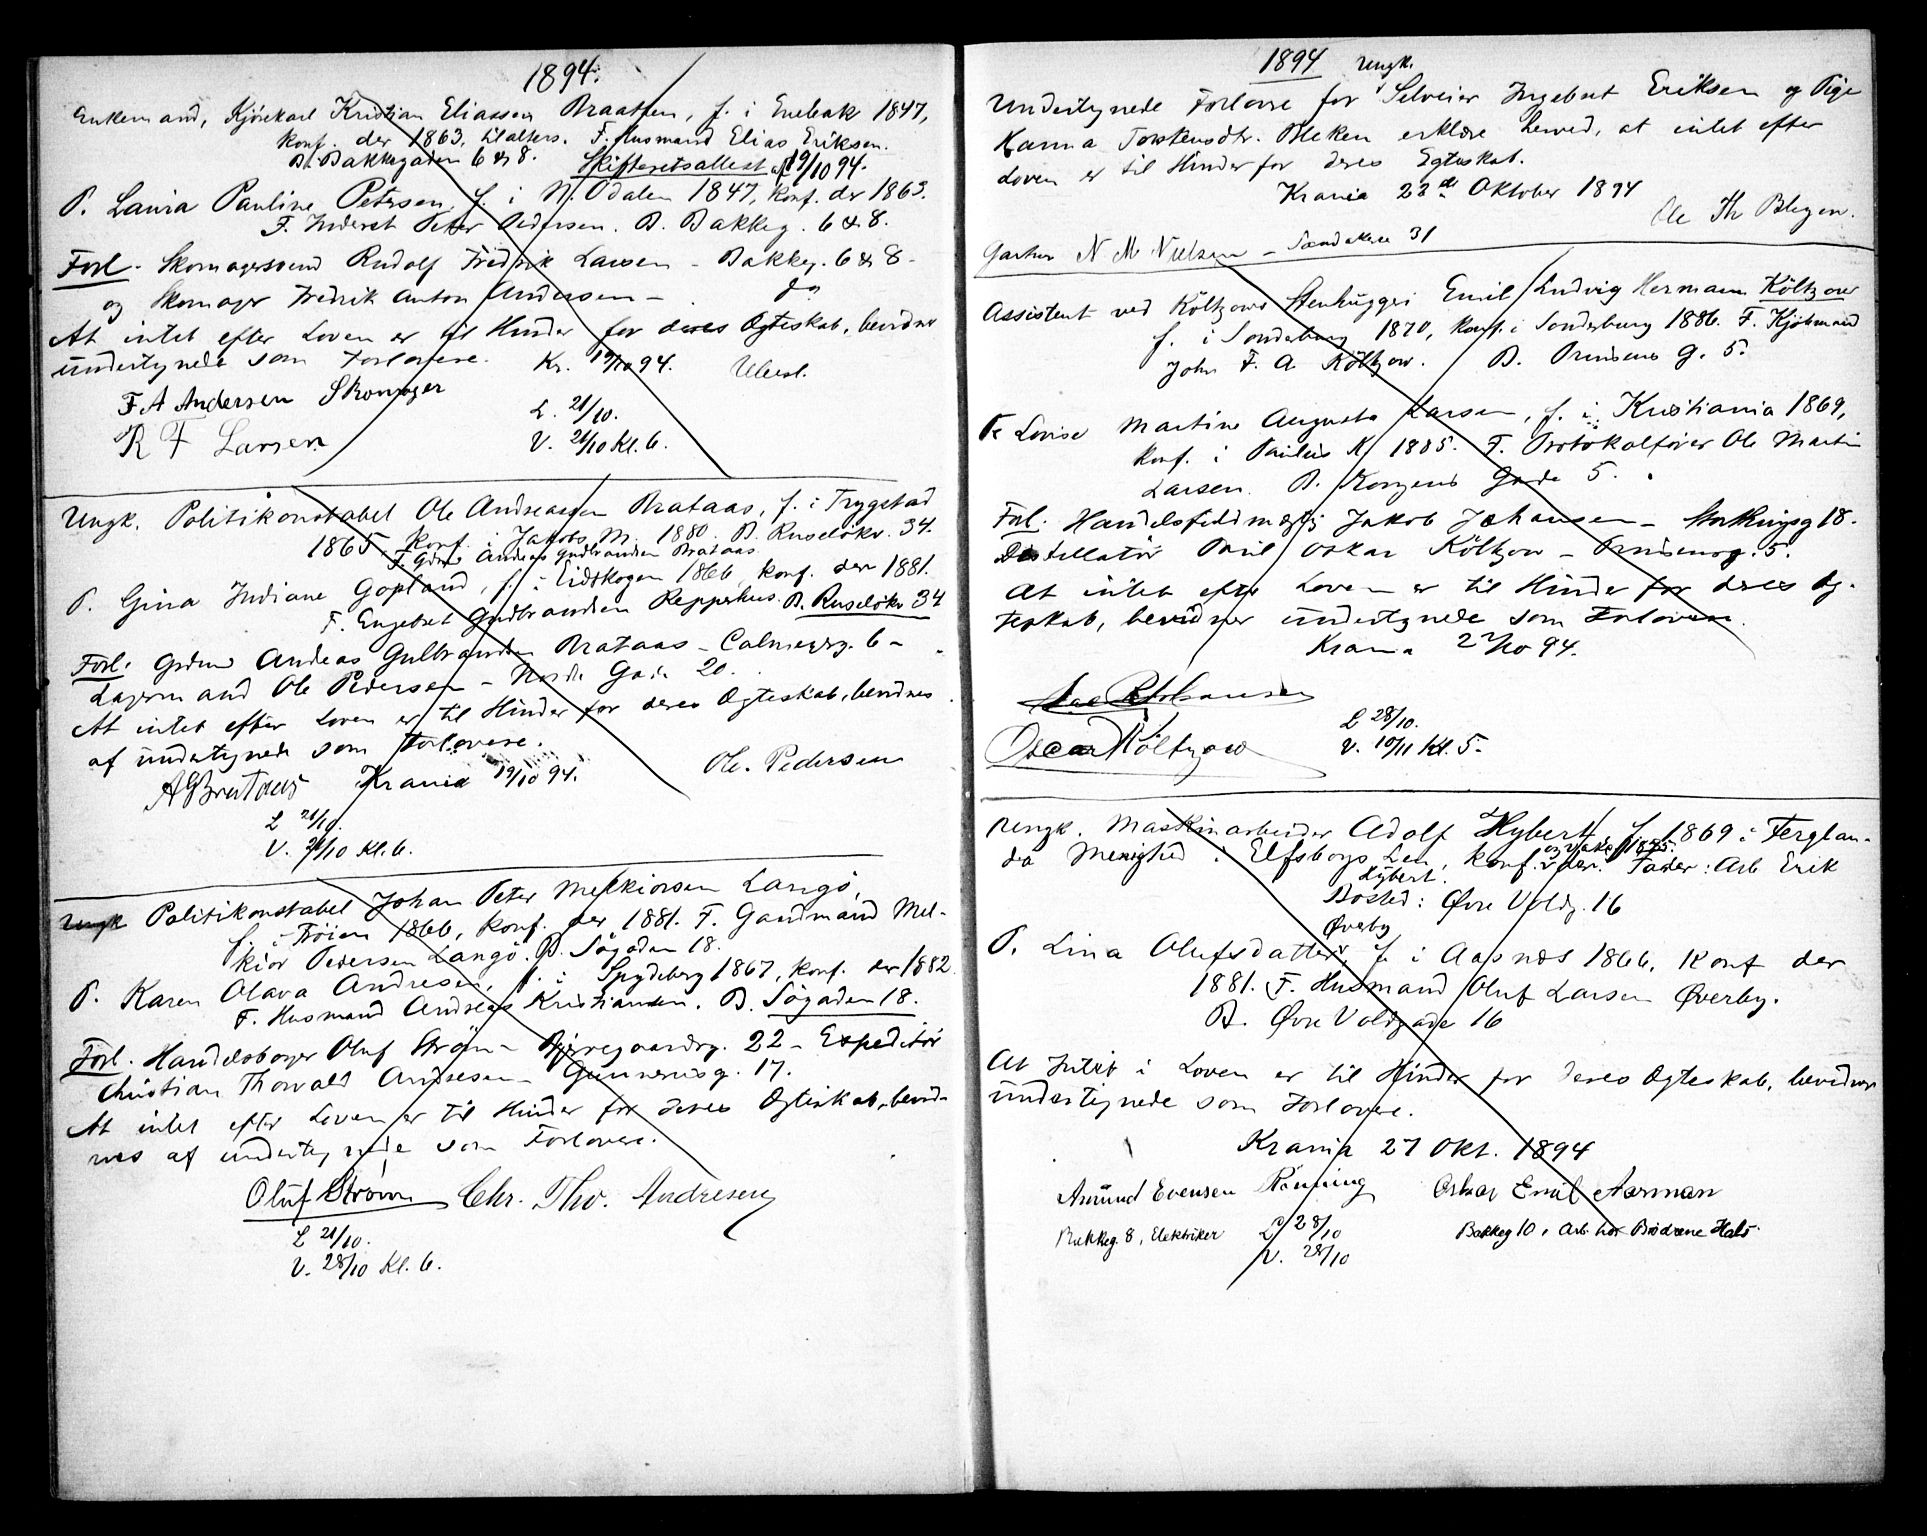 1894.
Enkemand, Kjørekarl Kristian Eliassen Braathen, f. i Enebak 1847,
konf. der 1863, til alters. F. Husmand Elias Eriksen.
B. Bakkegaden 6 & 8. Skifteretsattest af 19/10 94.
P. Laura Pauline Petersen, f. i N. Odalen 1847, konf. der 1863.
F. Inderst Peter Pedersen. B. Bakkeg. 6 & 8.
Forl. Skomagersvend Rudolf Fredrik Larsen - Bakkeg. 6 & 8 -
og Skomager Fredrik Anton Andersen - do
At intet efter Loven er til Hinder for deres Ægteskab, bevidner
undertegnede som Forlovere. Kr. 19/10 94.
F A Andersen Skomager
R F Larsen
L. 21/10.
V. 21/10 Kl. 6.
Ungk. Politikonstabel Ole Andreassen Brataas, f. i Trygstad
1865, konf. i Jakobs M. 1880. B. Ruseløkv. 34.
F. Gdm Andreas Gudbrandsen Brataas
P. Gina Indiane Gopland, f. i Eidskogen 1866, konf. der 1881.
F. Engebret Gudbrandsen Repperhus. B. Ruseløkv 34
Forl. Grdmd Andreas Gulbrandsen Brataas - Calmeyrg. 6 -
Lagermand Ole Pedersen - Nordre Gade 20.
At intet efter Loven er til Hinder for deres Ægteskab, bevidnes
af undertegnede som Forlovere.
A G Brataas Krania 19/10 94. Ole Pedersen
L 21/10.
V. 21/10 Kl. 6.
Ungk Politikonstabel Johan Peter Melkiorsen Langø,
f. i Frøien 1866, konf. der 1881. F. Gaardmand Mel-
kior Petersen Langø. B. Søgaden 18.
P. Karen Olava Andresen, f. i Spydeberg 1867, konf. der 1882
F. Husmand Andreas Kristiansen. B. Søgaden 18.
Forl. Handelsborger Oluf Strøm - Bjerregaardsg. 22 - Expeditør
Christian Thorvald Andresen - Gunnerusg. 17.
At intet efter Loven er til Hinder for deres Ægteskab, bevid-
nes af undertegnede som Forlovere.
Oluf Strøm Chr. Tho. Andresen
L 21/10.
V. 28/10 Kl. 6.
1894 Ungk.
Undertegnede Forlovere for Selveier Ingebret Eriksen og Pige
Karina Torstensdtr. Bleken erklære herved, at intet efter
Loven er til Hinder for deres Egteskab.
Krania 22de Oktober 1894
Ole Th Blegen.
Gartner N. M. Nielsen - Sandakerv 31
Assistent ved Költzows Stenhuggeri Emil Ludvig Hermann Költzow
f. i Sonderburg 1870, konf. i Sonderburg 1886. F. Kjöbmand
John F. A. Költzow. B. Prinsens G. 5.
P. Lovise Martine Augusta Larsen, f. i Kristiania 1869,
konf. i Paulus K. 1885. F. Protokolfører Ole Martin
Larsen. B. Kongens Gade 5.
Forl. Handelsfuldmægtig Jakob Johansen - Storkingsg 18.
Destillatör Paul Oskar Költzow - Prinsensg. 5.
At intet efter Loven er til Hinder for deres Æg-
teskab, bevidner undertegnede som Forlovere.
Krania 27/10 94.
Oscar Költzow
L 28/10.
V. 10/11 Kl. 5.
Ungk. Maskinarbeider Adolf Hybert f. 1869 i Ferglan-
da Menighed i Elfsborgs Len, konf. og vakc. 1885. der. Fader: Arb Erik
Hybert.
Bosted: Øvre Voldg. 16
P. Lina Olufsdatter Øverby, f. i Aasnæs 1866, Konf der
1881. F. Husmand Oluf Larsen Øverby.
B. Øvre Voldgade 16
At Intet i Loven er til Hinder for deres Ægteskab, bevidner
undertegnede som Forlovere.
Krania 27 Okt. 1894
Amund Evensen Rønning Oskar Emil Aarman
Bakkeg. 8, Elektriker Bakkeg 10, Arb. hos Brødrene Hals.
L 28/10
V. 28/10